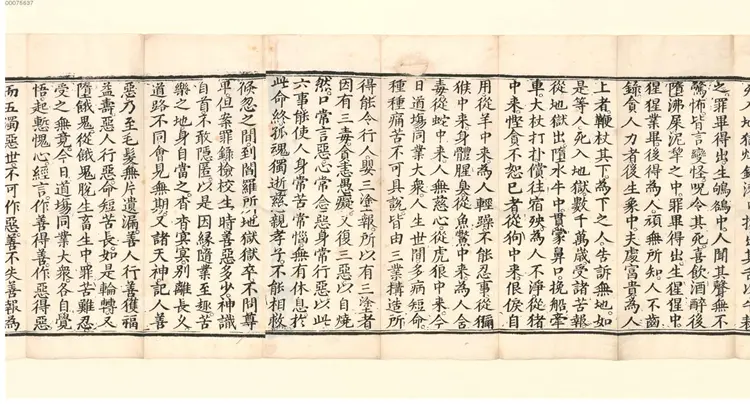 00075637
死入地獄
之罪畢得出生鵂鶹中人聞其聲無不
驚怖皆言變怪呪令其死喜飲酒醉後
墮沸屎泥犂之中罪畢得出生猩猩中
猩猩業畢後得為人頑無所知人不齒
錄貪人力者後生象中夫處富貴為人
上者鞭杖其下為下之人告訴無地如
是等人死入地獄數千萬歲受諸苦報
從地獄出墮水牛中貫穿鼻口挽船牽
車大杖打扑償往宿殃為人不淨從猪
中來慳貪不恕已者從狗中來佷戾自
用從羊中來為人輕躁不能忍事從獼
猴中來身體腥臭從魚鱉中來為人含
毒從蛇中來人無慈心從虎狼中來今
日道塲同業大衆人生世間多病短命
種種痛苦不可具說皆由三業構造所
得能令行人嬰三塗報所以有三塗者
因有三毒貪恚愚癡又復三惡以自燒
然口常言惡心常念惡身常行惡以此
六事能使人身常苦常惱無有休息於
此命終孤魂獨逝慈親孝子不能相救
倏忽之間到閻羅所地獄獄卒不問尊
卑但案罪錄檢校生時善惡多少神識
自首不敢隱匿以是因緣隨業至趣苦
樂之地身自當之杳杳冥冥別離長久
道路不同會見無期又諸天神記人善
惡乃至毛髮無片遺漏善人行善獲福
益壽惡人行惡命短苦長如是輪轉又
墮餓鬼從餓鬼脫生畜生中罪苦難忍
受之無竟今日道塲同業大衆各自覺
悟起慙愧心經言作善得善作惡得惡
而五濁惡世不可作惡善不失善報為